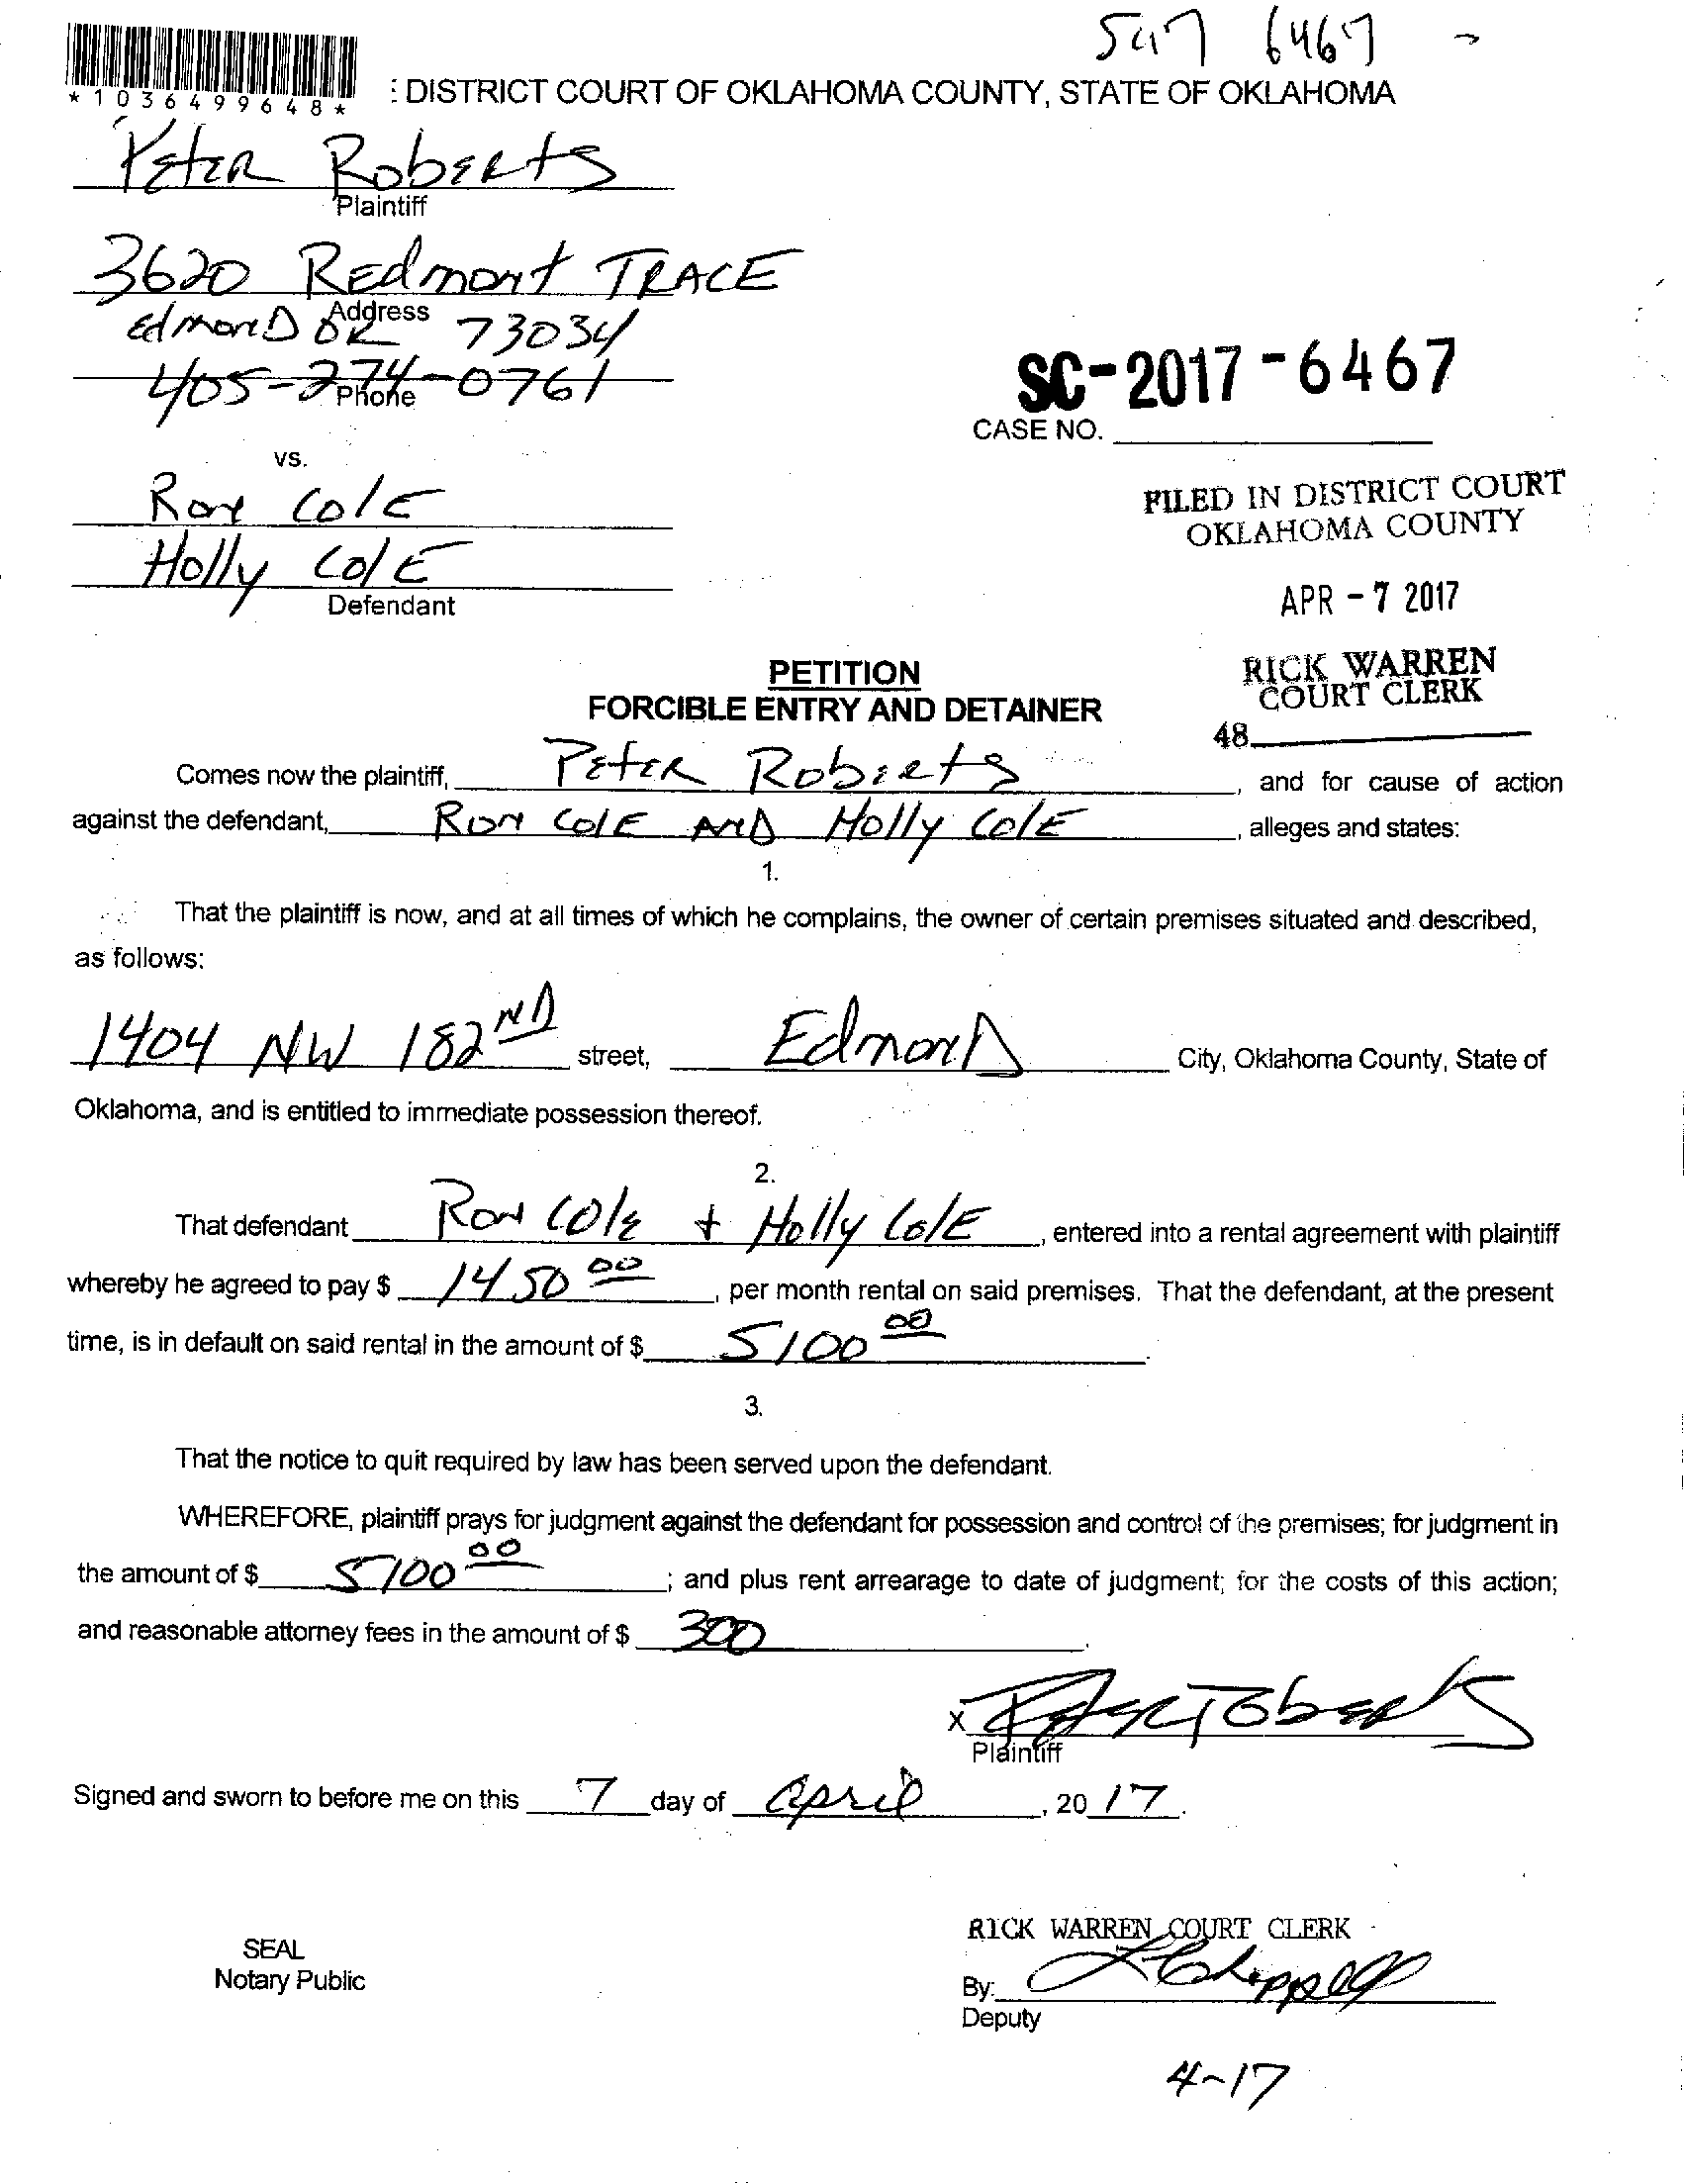 5417 6467
*1036499648*
: DISTRICT COURT OF OKLAHOMA COUNTY, STATE OF OKLAHOMA
PETER ROBERTS
Plaintiff
3620 REdmont TRACE
Address
EdmonD OK 73034
405-274-0761
Phone
SC-2017-6467
CASE NO.
vs.
Ron ColE
Holly ColE
Defendant
FILED IN DISTRICT COURT
OKLAHOMA COUNTY
APR - 7 2017
RICK WARREN
COURT CLERK
48
PETITION
FORCIBLE ENTRY AND DETAINER
Comes now the plaintiff, PETER ROBERTS, and for cause of action
against the defendant, Ron ColE AND Holly ColE, alleges and states:
1.
That the plaintiff is now, and at all times of which he complains, the owner of certain premises situated and described,
as follows:
1404 NW 182ND street, EdmonD City, Oklahoma County, State of
Oklahoma, and is entitled to immediate possession thereof.
2.
That defendant Ron ColE + Holly ColE, entered into a rental agreement with plaintiff
whereby he agreed to pay $ 1450 00, per month rental on said premises. That the defendant, at the present
time, is in default on said rental in the amount of $ 5100 00.
3.
That the notice to quit required by law has been served upon the defendant.
WHEREFORE, plaintiff prays for judgment against the defendant for possession and control of the premises; for judgment in
the amount of $ 5100 00; and plus rent arrearage to date of judgment; for the costs of this action;
and reasonable attorney fees in the amount of $ 300.
X Peter Roberts
Plaintiff
Signed and sworn to before me on this 7 day of April, 20 17.
RICK WARREN COURT CLERK
SEAL
Notary Public
By: 
Deputy
4-17